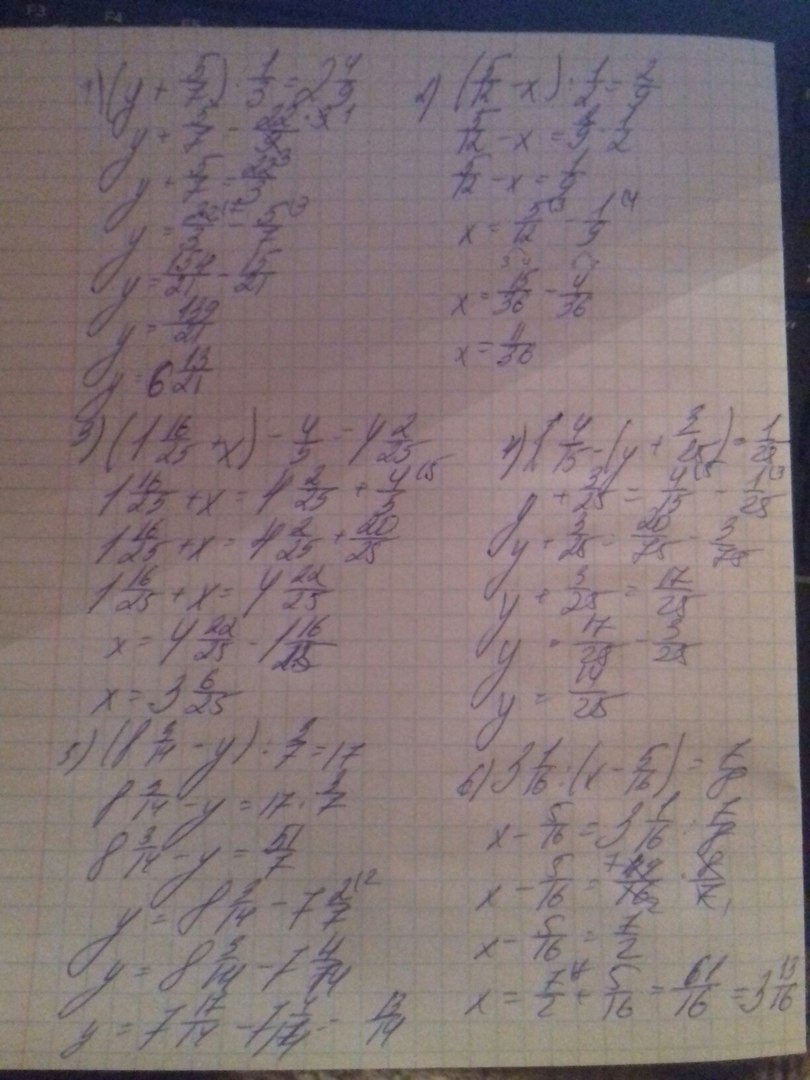 1) (y + 5/7) · 1/3 = 2 4/9
y + 5/7 = 22/9 · 3/1
y + 5/7 = 22/3
y = 22/3 - 5/7
y = 154/21 - 15/21
y = 139/21
y = 6 13/21
2) (5/12 - x) : 1/2 = 2/9
5/12 - x = 2/9 · 1/2
5/12 - x = 1/9
x = 5/12 - 1/9
x = 15/36 - 4/36
x = 11/36
3) (1 16/25 + x) - 4/5 = 4 2/25
1 16/25 + x = 4 2/25 + 4/5
1 16/25 + x = 4 2/25 + 20/25
1 16/25 + x = 4 22/25
x = 4 22/25 - 1 16/25
x = 3 6/25
4) 4/15 - (y + 3/25) = 1/25
y + 3/25 = 4/15 - 1/25
y + 3/25 = 20/75 - 3/75
y + 3/25 = 17/25
y = 17/25 - 3/25
y = 14/25
5) (8 3/14 - y) : 3/7 = 17
8 3/14 - y = 17 · 3/7
8 3/14 - y = 51/7
y = 8 3/14 - 7 2/7
y = 8 3/14 - 7 4/14
y = 7 17/14 - 7 4/14 = 13/14
6) 3 1/16 : (x - 5/16) = 7/8
x - 5/16 = 3 1/16 : 7/8
x - 5/16 = 49/16 · 8/7
x - 5/16 = 7/2
x = 7/2 + 5/16 = 61/16 = 3 13/16